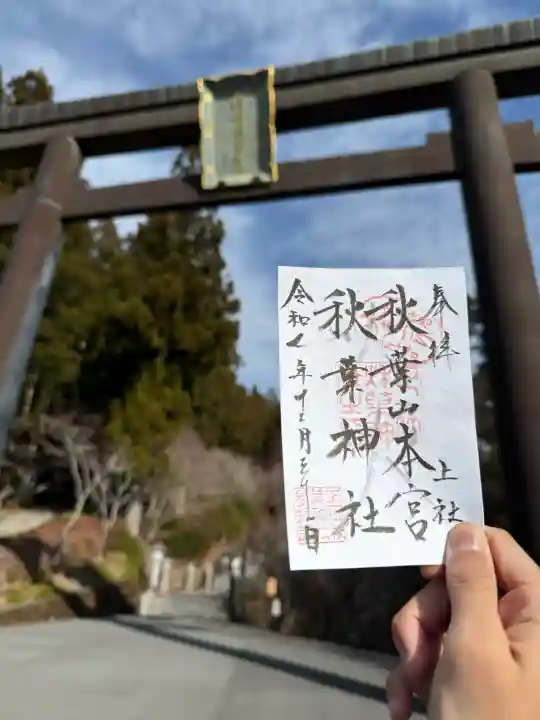 奉拝
上社
秋葉山本宮
秋葉神社
令和七年十二月三十一日